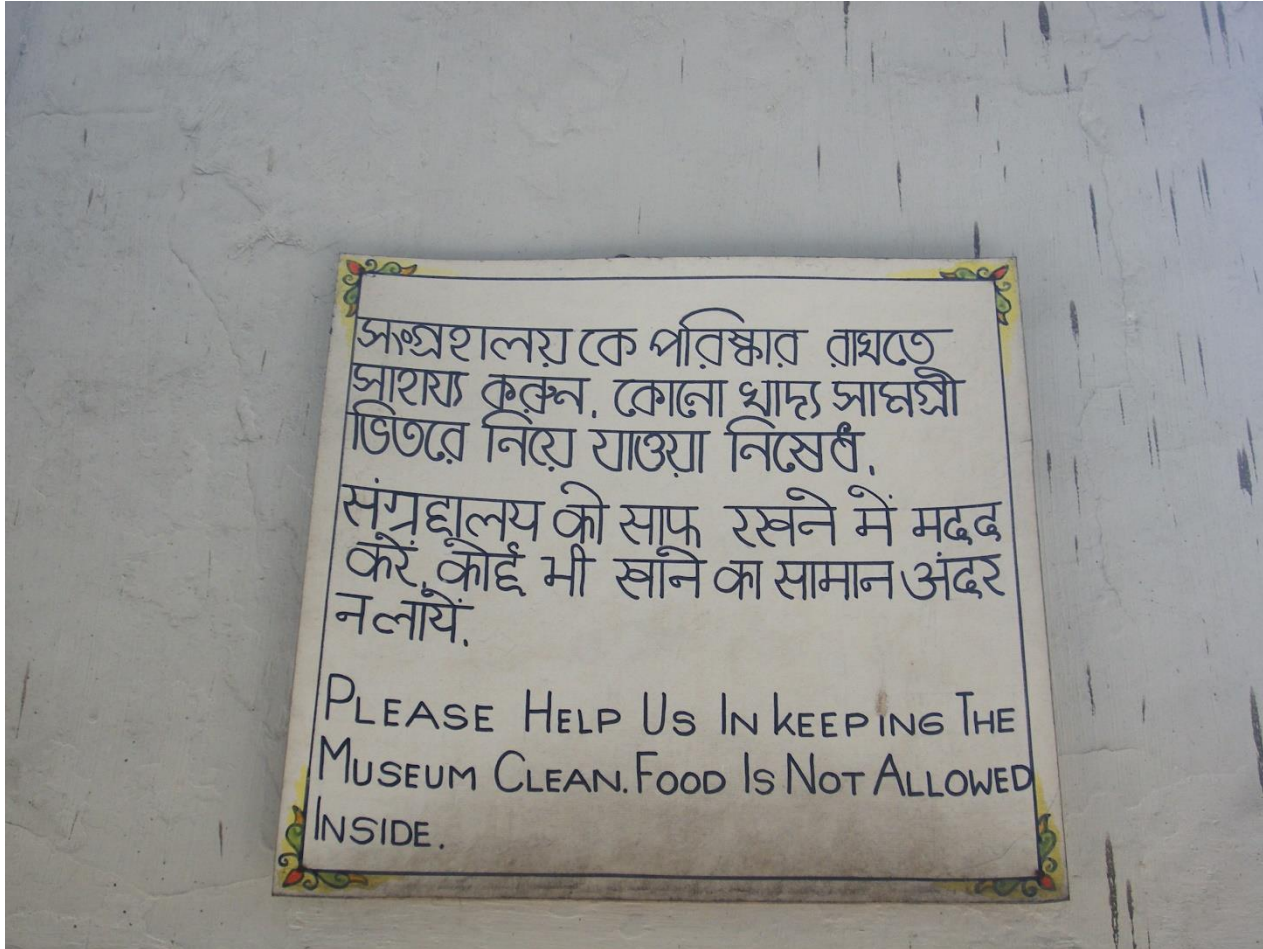 সংগ্রহালয় কে পরিষ্কার রাখতে
সাহায্য করুন. কোনো খাদ্য সামগ্রী
ভিতরে নিয়ে যাওয়া নিষেধ.
संग्रहालय को साफ रखने में मदद
करें. कोई भी खाने का सामान अंदर
न लायें.
PLEASE HELP US IN KEEPING THE
MUSEUM CLEAN. FOOD IS NOT ALLOWED
INSIDE.